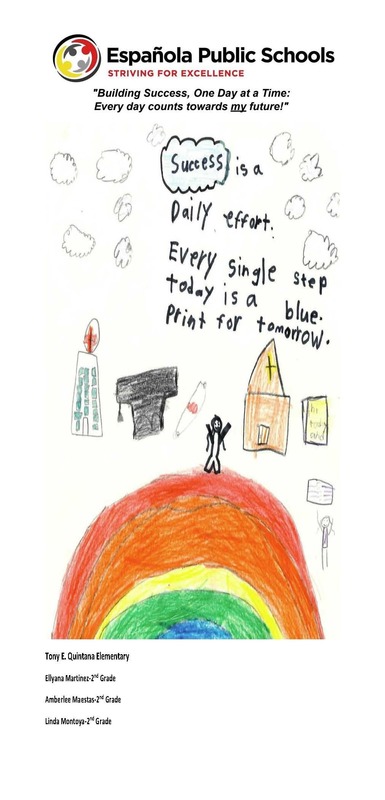 Española Public Schools
STRIVING FOR EXCELLENCE
"Building Success, One Day at a Time:
Every day counts towards my future!"
Success is a
Daily effort.
Every single step
today is a blue.
Print for tomorrow.
Tony E. Quintana Elementary
Ellyana Martinez-2nd Grade
Amberlee Maestas-2nd Grade
Linda Montoya-2nd Grade